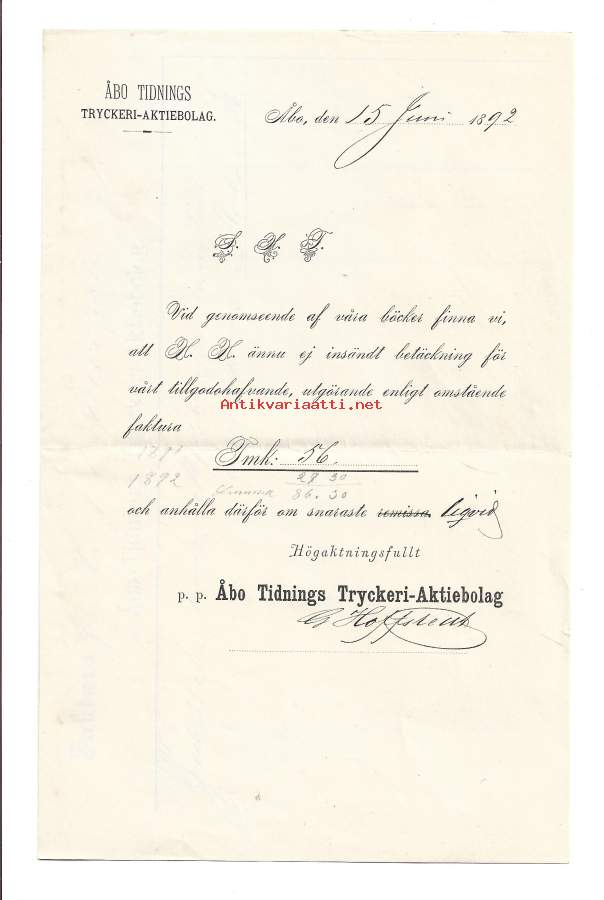 ÅBO TIDNINGS
TRYCKERI-AKTIEBOLAG.
Åbo, den 15 Juni 1892
S. H. T.
Vid genomseende af våra böcker finna vi,
att H. H. ännu ej insändt betäckning för
vårt tillgodohafvande, utgörande enligt omstående
Antikvariaatti.net
faktura
1891
Fmk: 56.
1892
29 30
Summa 86.30
och anhålla därför om snaraste remissa. liqvid
Högaktningsfullt
p. p. Åbo Tidnings Tryckeri-Aktiebolag
G Hoffstedt